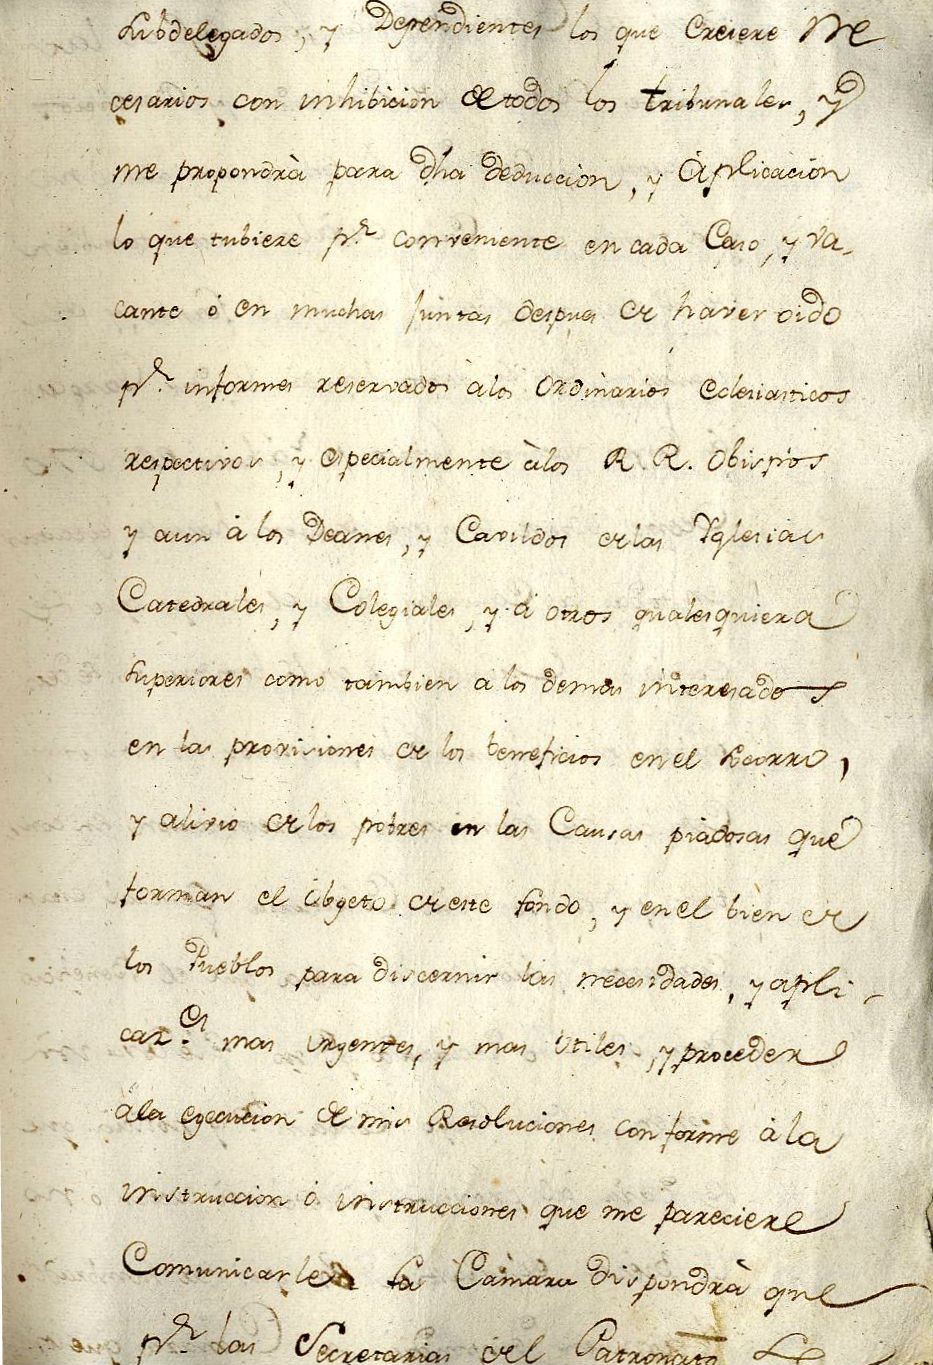 Subdelegados, y Dependientes los que creiere Ne
cesarios con inhibicion de todos los tribunales, y
me propondrà para dha deduccion, y àplicacion
lo que tubiere pr. conveniente en cada Caso, y va-
cante ó en muchas juntas despues de haver oido
pr. informes reservados à los Ordinarios eclesiasticos
respectivos, y especialmente à los R R. Obispos
y aun à los Deanes, y Cavildos de las Yglesias
Catedrales, y Colegiales, y à otros qualesquiera
Superiores como tambien a los demas interesados
en las provisiones de los beneficios en el socorro,
y alivio de los pobres en las Causas piadosas que
forman el óbgeto de este fondo, y en el bien de
los Pueblos para discernir las necesidades, y apli-
car.es mas urgentes, y mas utiles, y proceder
à la egecucion de mis Resoluciones conforme à la
instruccion ó instrucciones que me pareciere
Comunicarle. La Càmara dispondrà que
pr. las Secretarias del Patronato